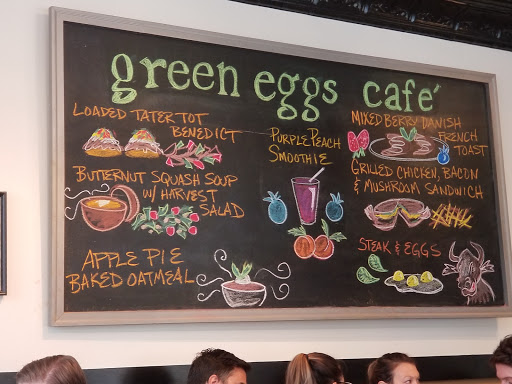 green eggs café
LOADED TATER TOT
BENEDICT
BUTTERNUT SQUASH SOUP
W/ HARVEST
SALAD
APPLE PIE
BAKED OATMEAL
PURPLE PEACH
SMOOTHIE
MIXED BERRY DANISH
FRENCH
TOAST
GRILLED CHICKEN, BACON
& MUSHROOM SANDWICH
STEAK & EGGS